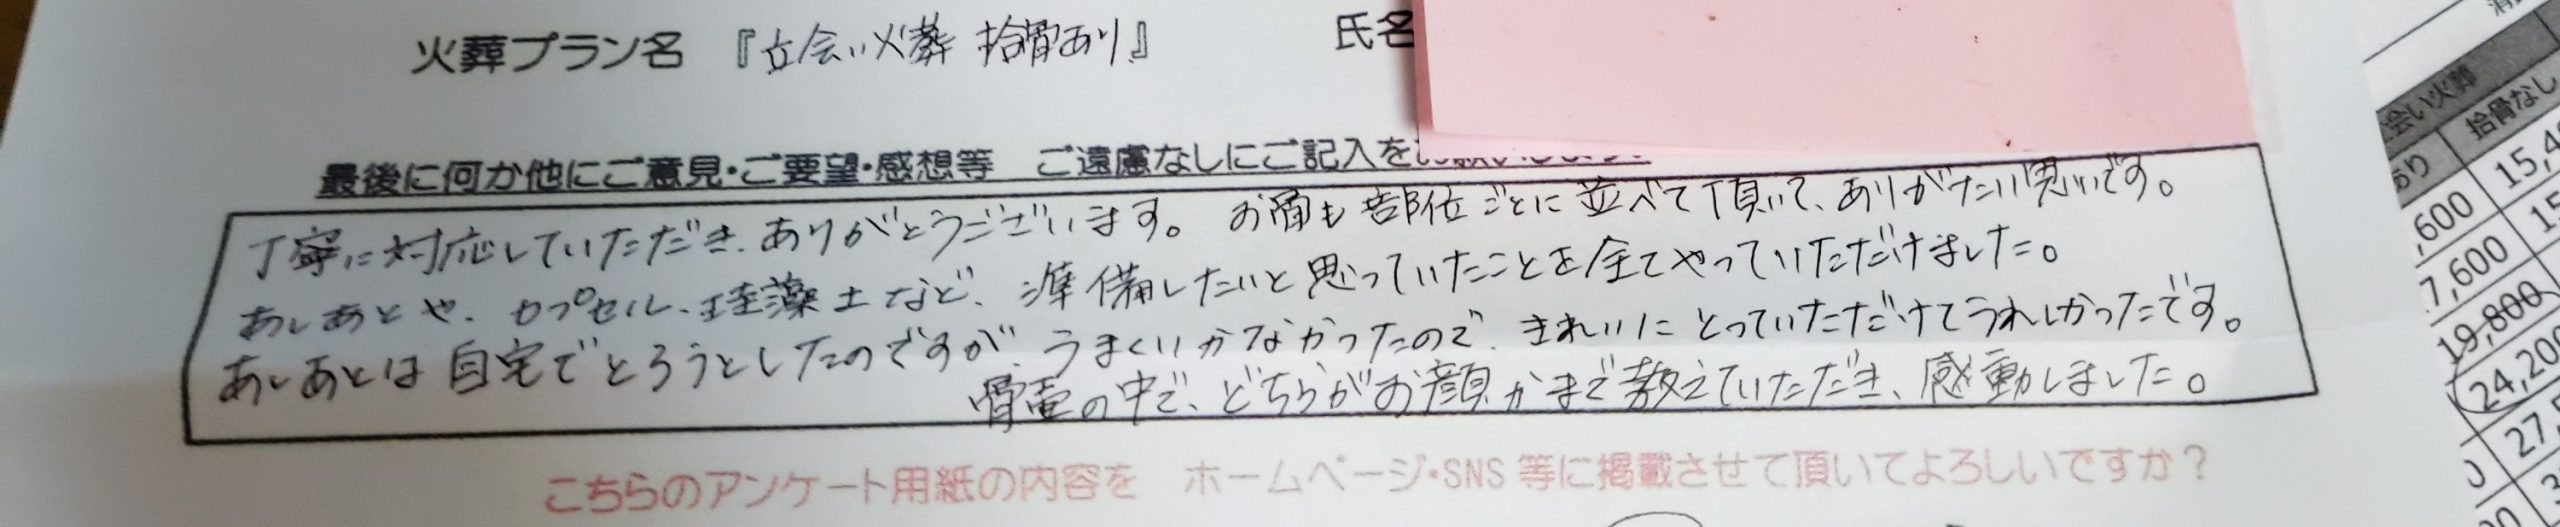 火葬プラン名 『立会い火葬 拾骨あり』 氏名
最後に何か他にご意見・ご要望・感想等 ご遠慮なしにご記入を
丁寧に対応していただき、ありがとうございます。お骨も部位ごとに並べて頂いて、ありがたい思いです。
あしあとや、カプセル、珪藻土など、準備したいと思っていたことを全てやっていただけました。
あしあとは自宅でとろうとしたのですが、うまくいかなかったので、きれいにとっていただけてうれしかったです。
骨壷の中で、どちらがお顔かまで教えていただき、感動しました。
こちらのアンケート用紙の内容を ホームページ・SNS等に掲載させて頂いてよろしいですか?
会い火葬
あり 拾骨なし
,600 15,4
7,600 15
19,800
24,200
27,